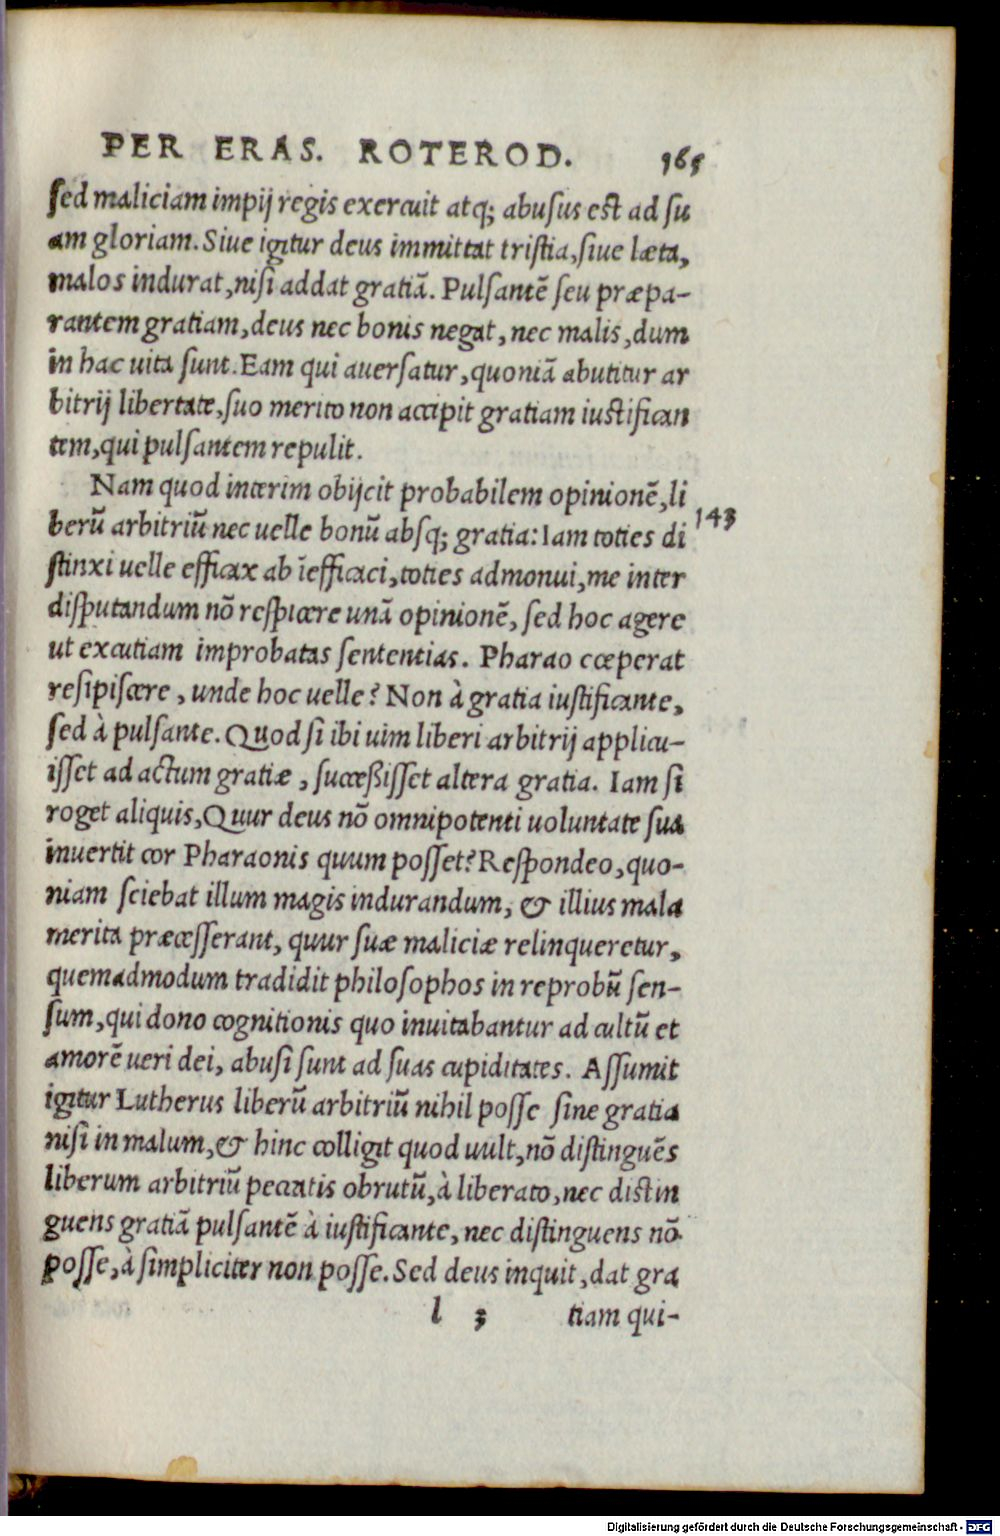 PER ERAS. ROTEROD. 165
sed maliciam impij regis exercuit atq; abusus est ad su
am gloriam. Siue igitur deus immittat tristia, siue læta,
malos indurat, nisi addat gratiā. Pulsantē seu præpa-
rantem gratiam, deus nec bonis negat, nec malis, dum
in hac uita sunt. Eam qui auersatur, quoniā abutitur ar
bitrij libertate, suo merito non accipit gratiam iustifican
tem, qui pulsantem repulit.
Nam quod interim obijcit probabilem opinionē, li
143
berū arbitriū nec uelle bonū absq; gratia: Iam toties di
stinxi uelle efficax ab īefficaci, toties admonui, me inter
disputandum nō respicere unā opinionē, sed hoc agere
ut excutiam improbatas sententias. Pharao cœperat
resipiscere, unde hoc uelle? Non à gratia iustificante,
sed à pulsante. Quod si ibi uim liberi arbitrij applicu-
isset ad actum gratiæ, successisset altera gratia. Iam si
roget aliquis, Quur deus nō omnipotenti uoluntate sua
inuertit cor Pharaonis quum posset? Respondeo, quo-
niam sciebat illum magis indurandum, & illius mala
merita præcesserant, quur suæ maliciæ relinqueretur,
quemadmodum tradidit philosophos in reprobū sen-
sum, qui dono cognitionis quo inuitabantur ad cultū et
amorē ueri dei, abusi sunt ad suas cupiditates. Assumit
igitur Lutherus liberū arbitriū nihil posse sine gratia
nisi in malum, & hinc colligit quod uult, nō distinguēs
liberum arbitriū peccatis obrutū, à liberato, nec distin
guens gratiā pulsantē à iustificante, nec distinguens nō
posse, à simpliciter non posse. Sed deus inquit, dat gra
l 3 tiam qui-
Digitalisierung gefördert durch die Deutsche Forschungsgemeinschaft - DFG